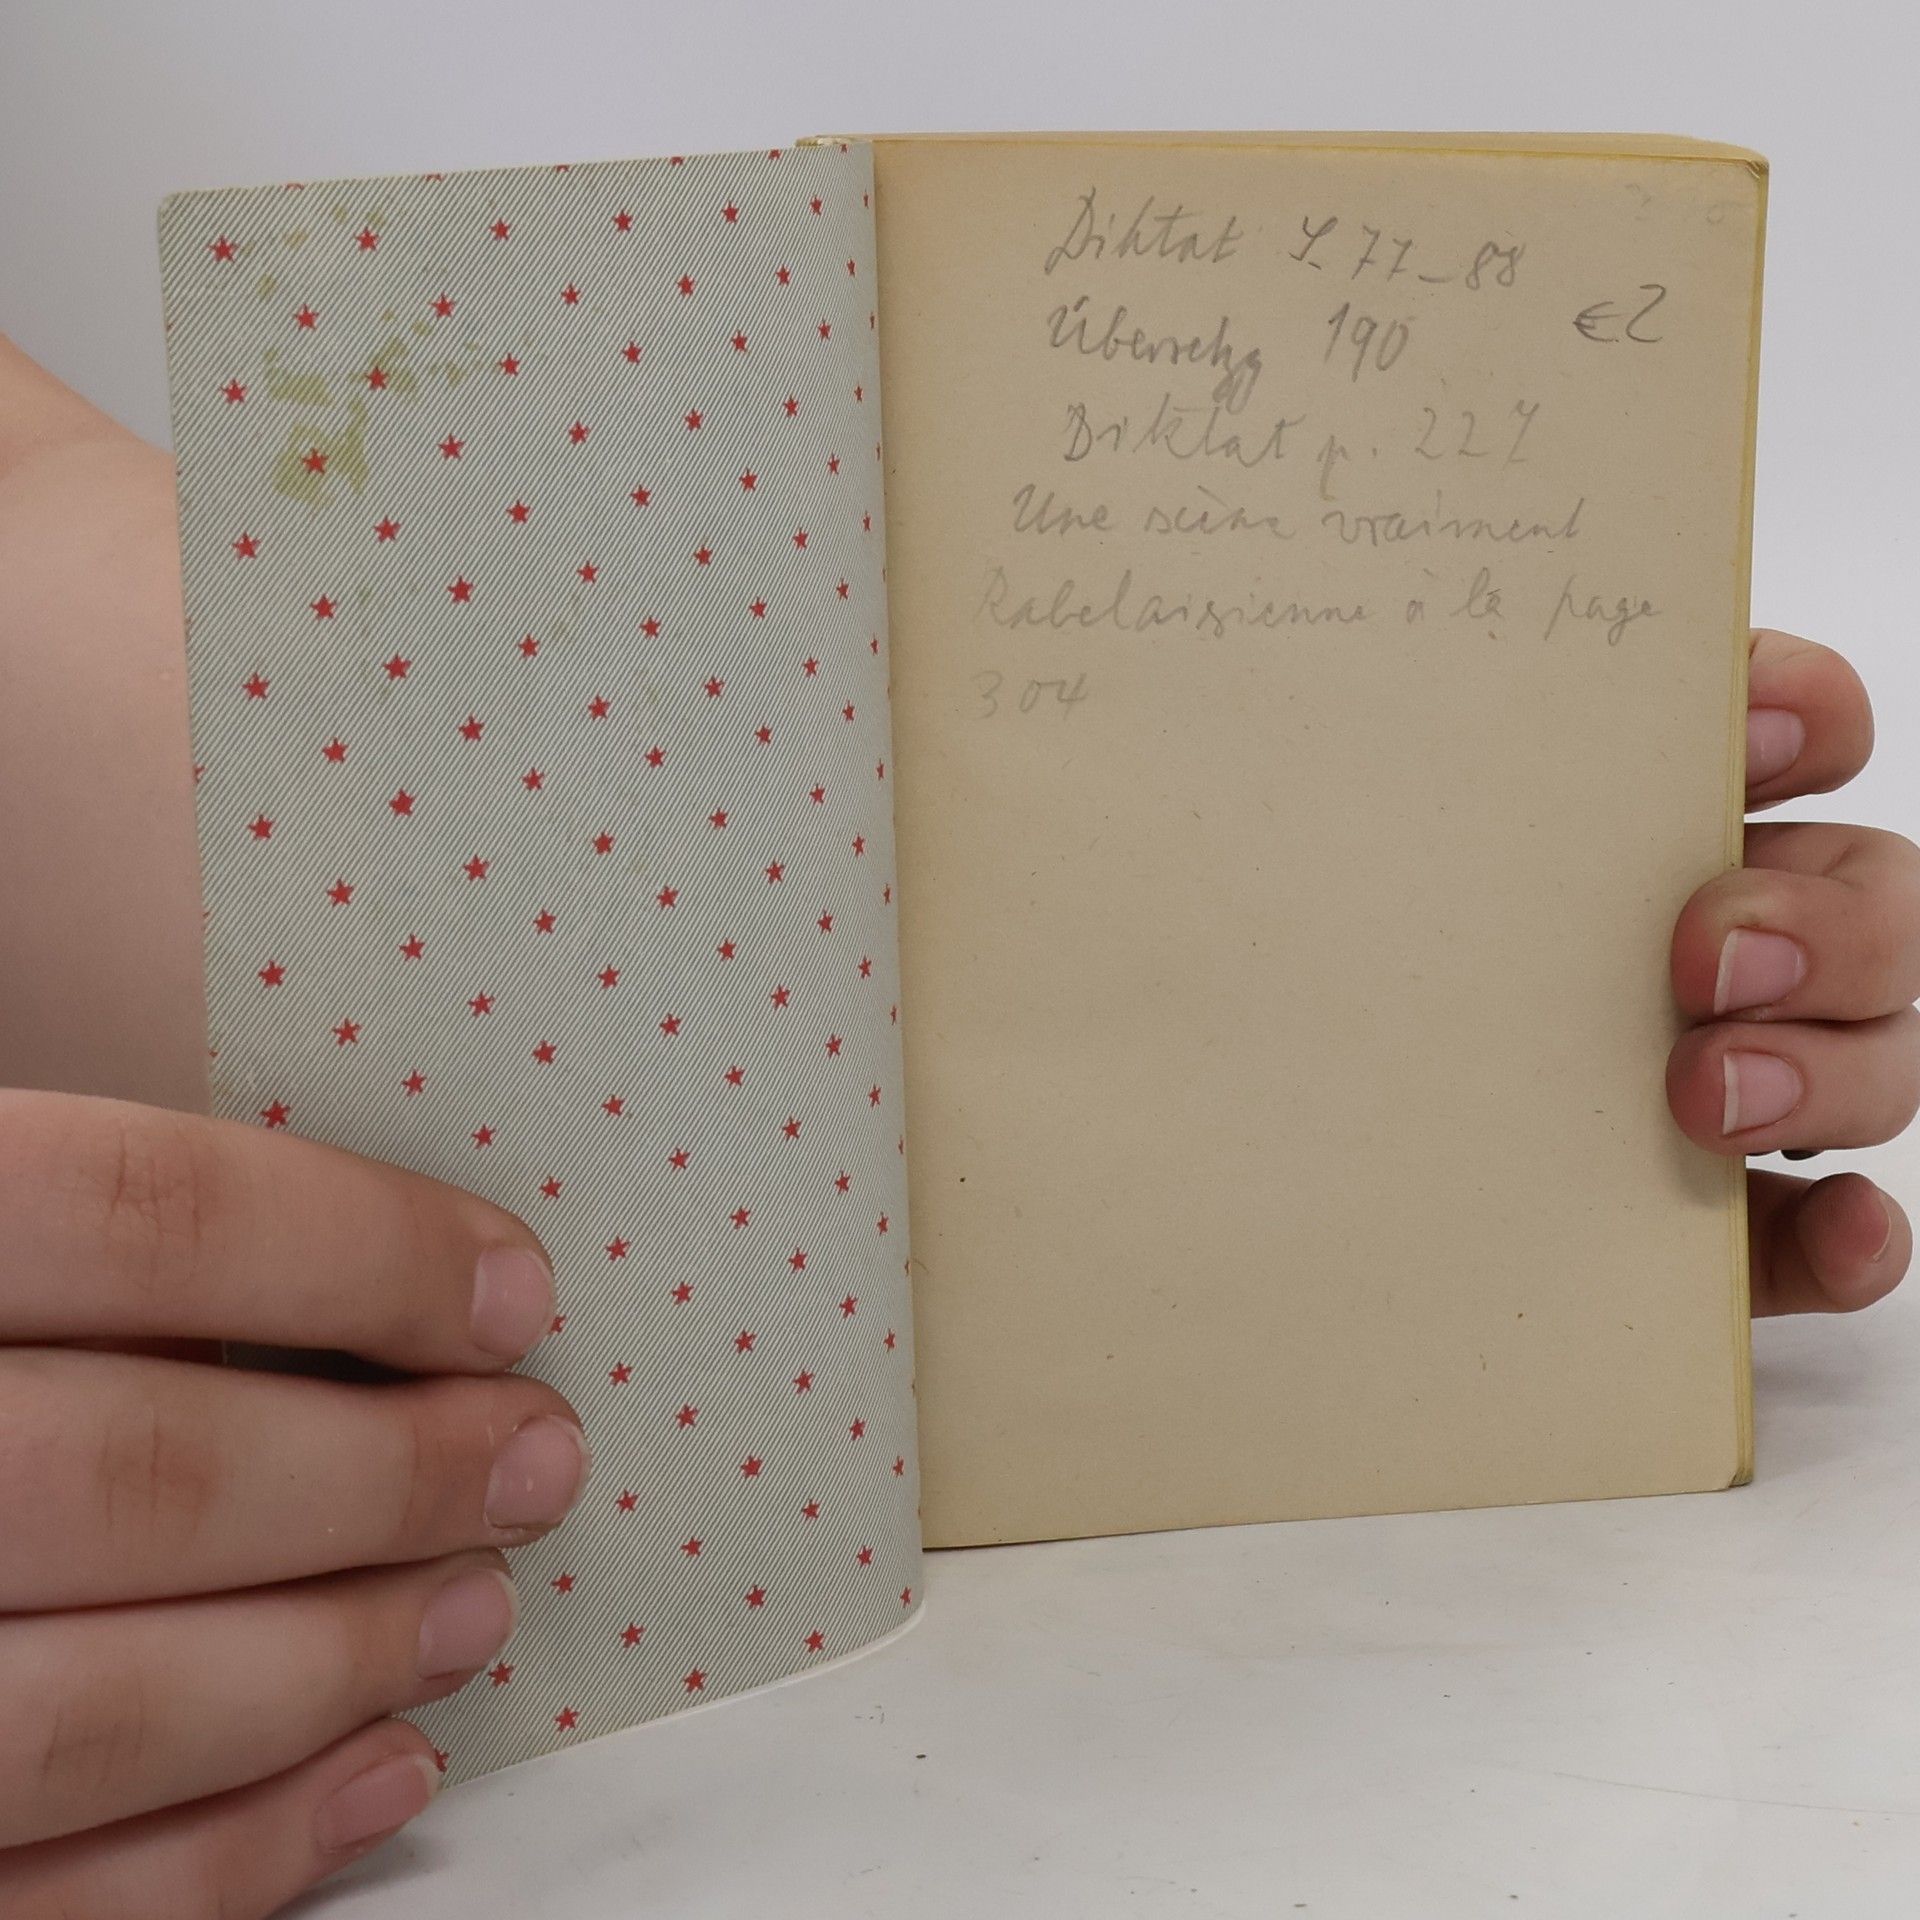 Diktat S. 77-88
€2
Übersetzg 190
Diktat p. 227
Une scène vraiment
Rabelaisienne à la page
304